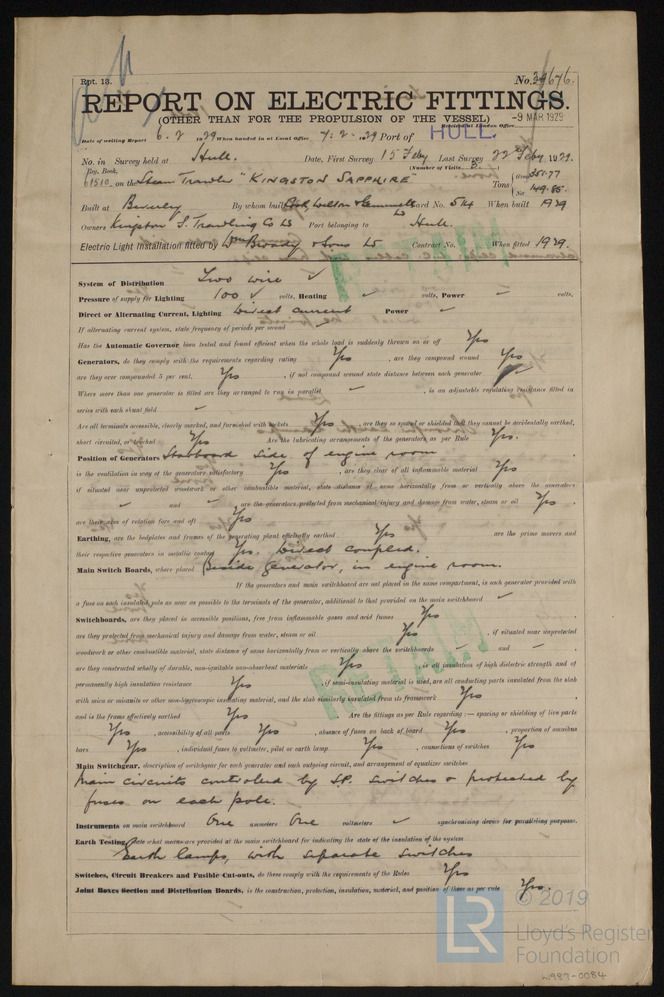 Rpt. 13. No. 39676.
REPORT ON ELECTRIC FITTINGS.
(OTHER THAN FOR THE PROPULSION OF THE VESSEL)
-9 MAR 1929
Date of writing Report 6.2 1929 When handed in at Local Office 7.2.1929 Port of HULL.
No. in Survey held at Hull. Date, First Survey 15 Feby Last Survey 22 Feby 1929.
Reg. Book. (Number of Visits 8.)
61510 on the Steam Trawler "KINGSTON SAPPHIRE" Tons Gross 351.77
Net 149.85.
Built at Beverley By whom built Cook Welton & Gemmell Ld Yard No. 514 When built 1929
Owners Kingston S. Trawling Co Ld Port belonging to Hull.
Electric Light Installation fitted by Wm Broady & Sons Ld Contract No. When fitted 1929.
RETAIN
System of Distribution Two wire ✓
Pressure of supply for Lighting 100 ✓ volts, Heating ✓ volts, Power ✓ volts.
Direct or Alternating Current, Lighting Direct current Power ✓
If alternating current system, state frequency of periods per second ✓
Has the Automatic Governor been tested and found efficient when the whole load is suddenly thrown on or off Yes
Generators, do they comply with the requirements regarding rating Yes, are they compound wound Yes
are they over compounded 5 per cent. Yes, if not compound wound state distance between each generator ✓
Where more than one generator is fitted are they arranged to run in parallel ✓, is an adjustable regulating resistance fitted in
series with each shunt field ✓
Are all terminals accessible, clearly marked, and furnished with sockets Yes, are they so spaced or shielded that they cannot be accidentally earthed,
short circuited, or touched Yes Are the lubricating arrangements of the generators as per Rule Yes.
Position of Generators Starboard side of engine room
is the ventilation in way of the generators satisfactory Yes, are they clear of all inflammable material Yes
if situated near unprotected woodwork or other combustible material, state distance of same horizontally from or vertically above the generators
✓ and ✓ are the generators protected from mechanical injury and damage from water, steam or oil Yes.
are their axes of rotation fore and aft Yes
Earthing, are the bedplates and frames of the generating plant efficiently earthed Yes are the prime movers and
their respective generators in metallic contact Yes. Direct coupled.
Main Switch Boards, where placed Beside generator, in engine room.
If the generators and main switchboard are not placed in the same compartment, is each generator provided with
a fuse on each insulated pole as near as possible to the terminals of the generator, additional to that provided on the main switchboard ✓
Switchboards, are they placed in accessible positions, free from inflammable gases and acid fumes Yes
are they protected from mechanical injury and damage from water, steam or oil Yes, if situated near unprotected
woodwork or other combustible material, state distance of same horizontally from or vertically above the switchboards ✓ and ✓.
are they constructed wholly of durable, non-ignitable non-absorbent materials Yes, is all insulation of high dielectric strength and of
permanently high insulation resistance Yes, if semi-insulating material is used, are all conducting parts insulated from the slab
with mica or micanite or other non-hygroscopic insulating material, and the slab similarly insulated from its framework Yes
and is the frame effectively earthed Yes Are the fittings as per Rule regarding:— spacing or shielding of live parts
Yes, accessibility of all parts Yes, absence of fuses on back of board Yes, proportion of omnibus
bars Yes, individual fuses to voltmeter, pilot or earth lamp Yes, connections of switches Yes
RETAIN
Main Switchgear, description of switchgear for each generator and each outgoing circuit, and arrangement of equalizer switches
Main circuits controlled by S.P. switches & protected by
fuses on each pole.
Instruments on main switchboard One ammeters One voltmeters ✓ synchronizing device for paralleling purposes.
Earth Testing, state what means are provided at the main switchboard for indicating the state of the insulation of the system
Earth lamps, with separate switches
Switches, Circuit Breakers and Fusible Cut-outs, do these comply with the requirements of the Rules Yes
Joint Boxes Section and Distribution Boards, is the construction, protection, insulation, material, and position of these as per rule Yes.
© 2019
LR Lloyd's Register
Foundation
W983-0084